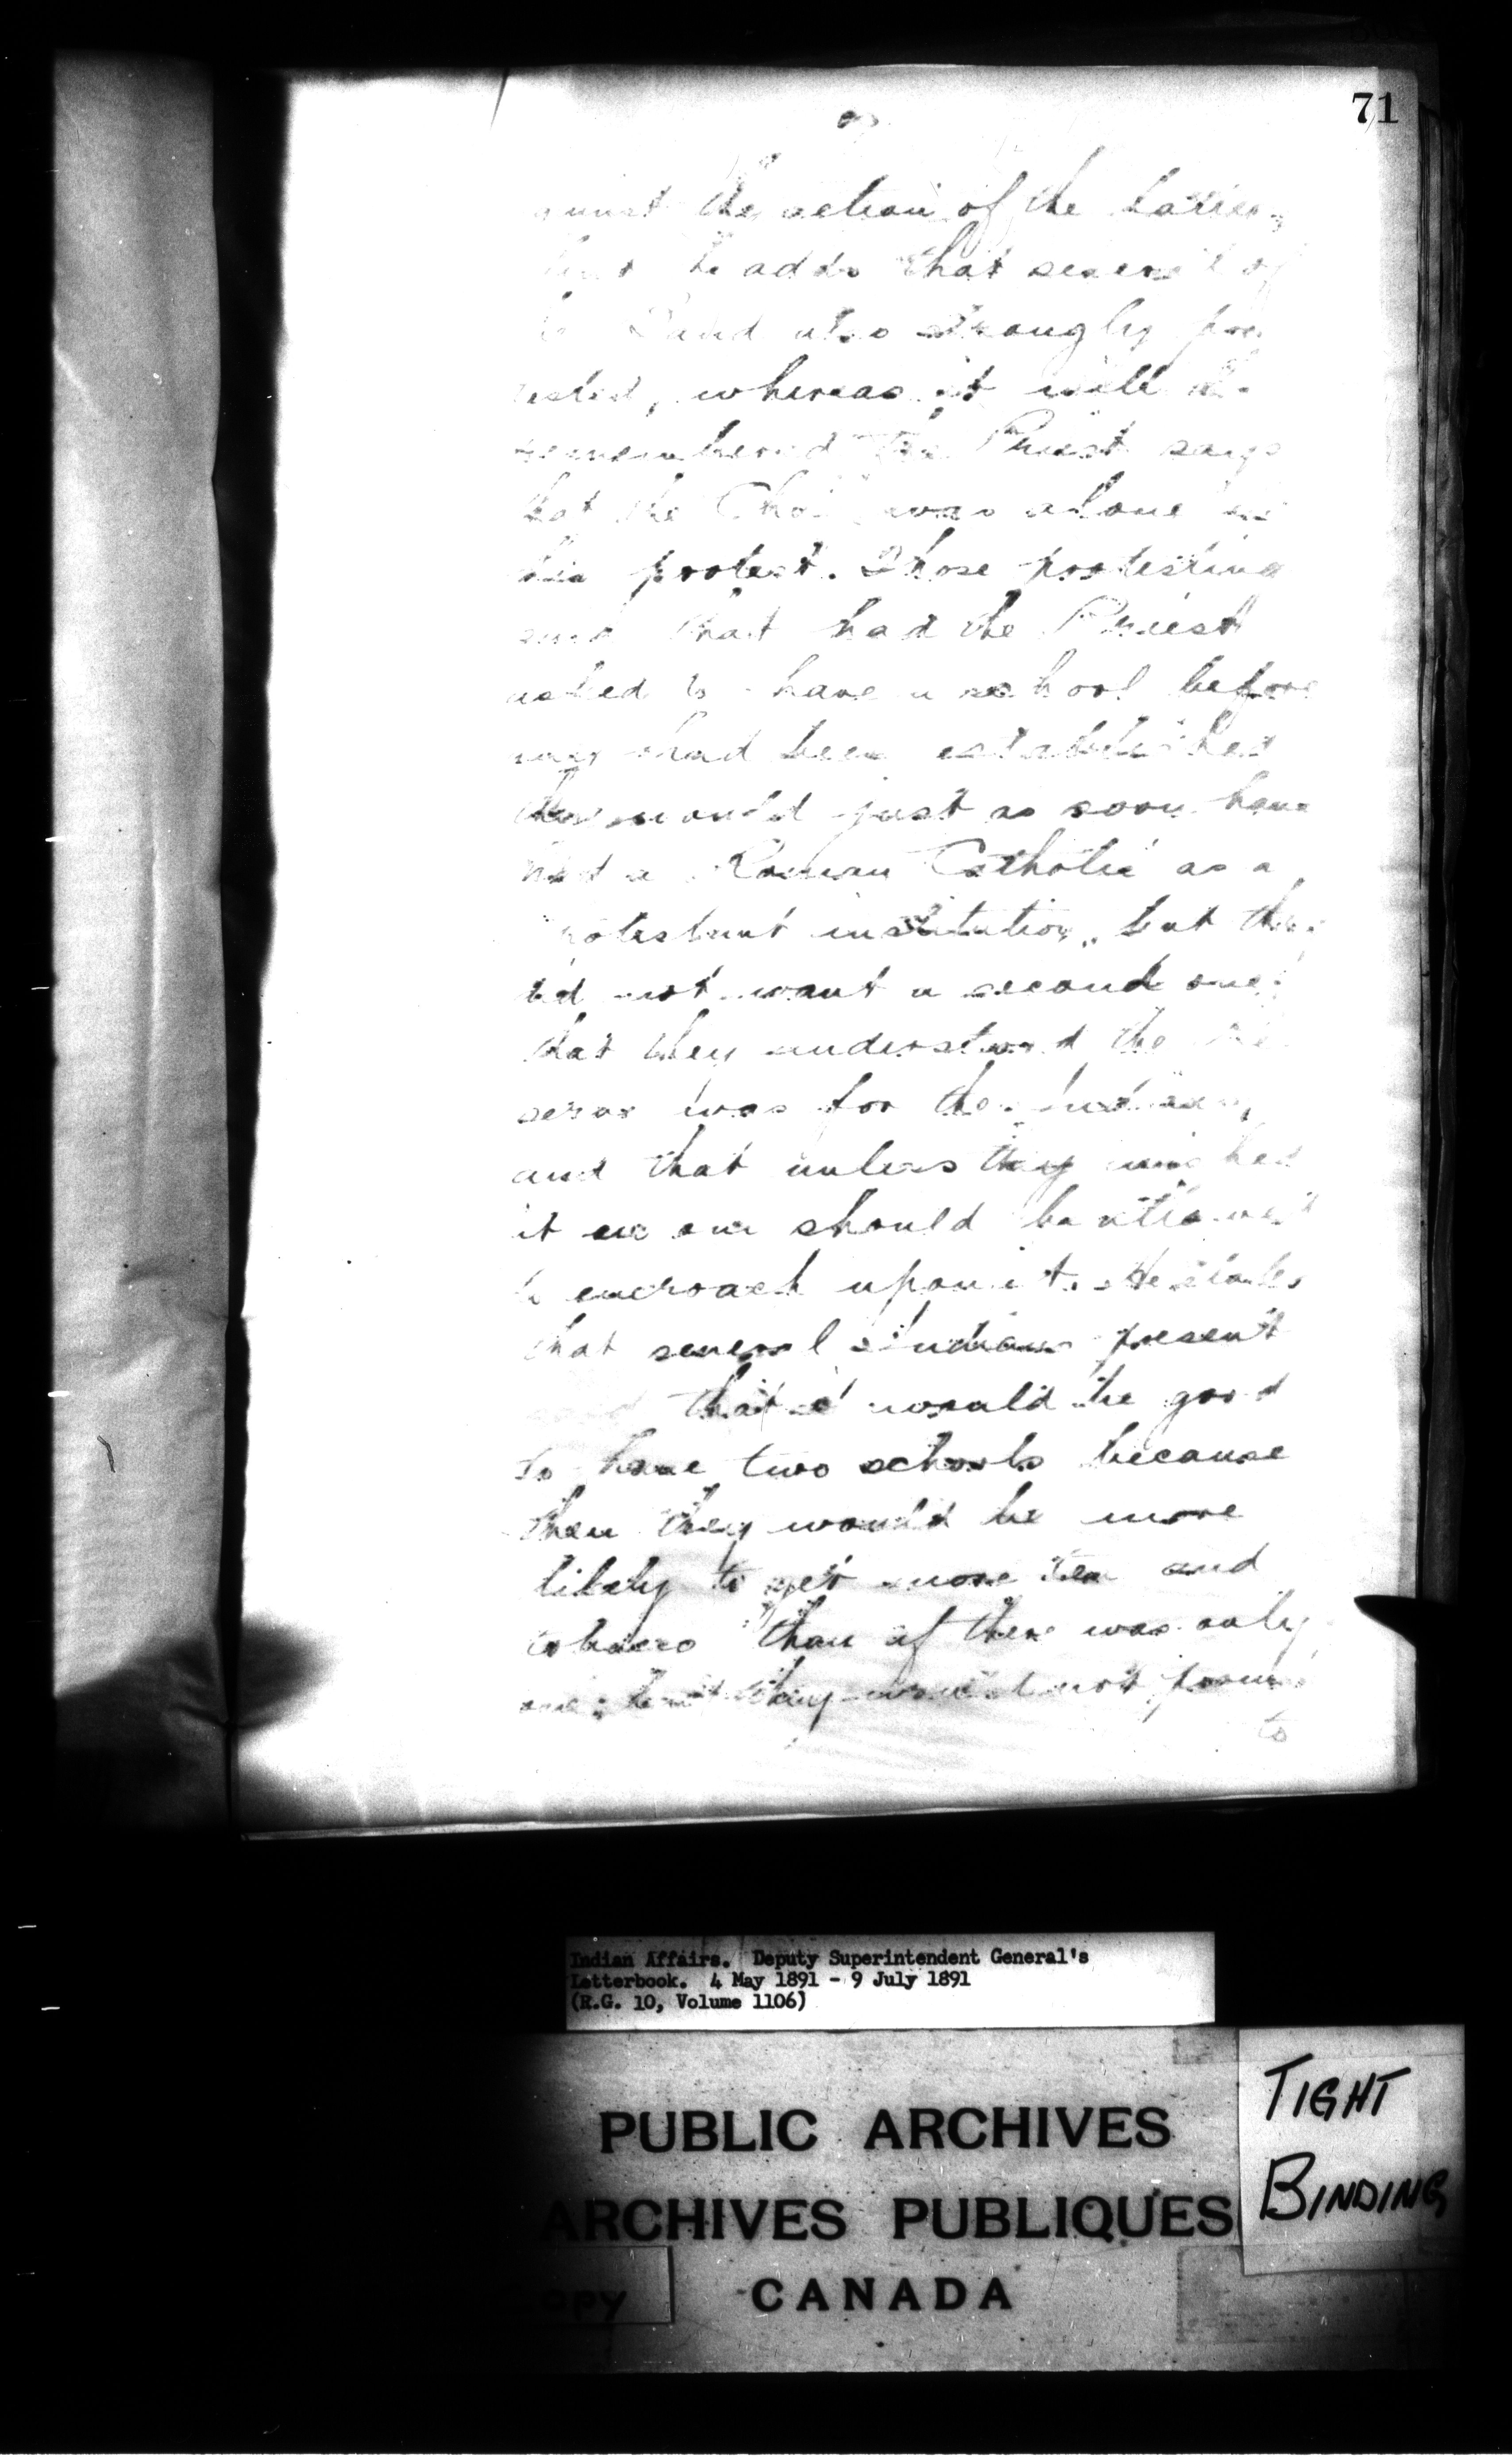 71
the action of the latter,
he adds that several of
Band also strongly pro
tested, whereas it will be
remembered the Priest says
that the Chief was alone in
his protest. Those protesting
said that had the Priest
asked to have a school before
any had been established
they would just as soon have
had a Roman Catholic as a
Protestant institution, but they
did not want a second one;
that they understood the Re
serve was for the Indians,
and that unless they wished
it no one should be allowed
to encroach upon it. He states
that several Indians present
said that it would be good
to have two schools because
then they would be more
likely to get more tea and
tobacco than if there was only
one; but they would not
to
Indian Affairs. Deputy Superintendent General's
Letterbook. 4 May 1891 - 9 July 1891
(R.G. 10, Volume 1106)
PUBLIC ARCHIVES
ARCHIVES PUBLIQUES
CANADA
TIGHT
BINDING
Copy